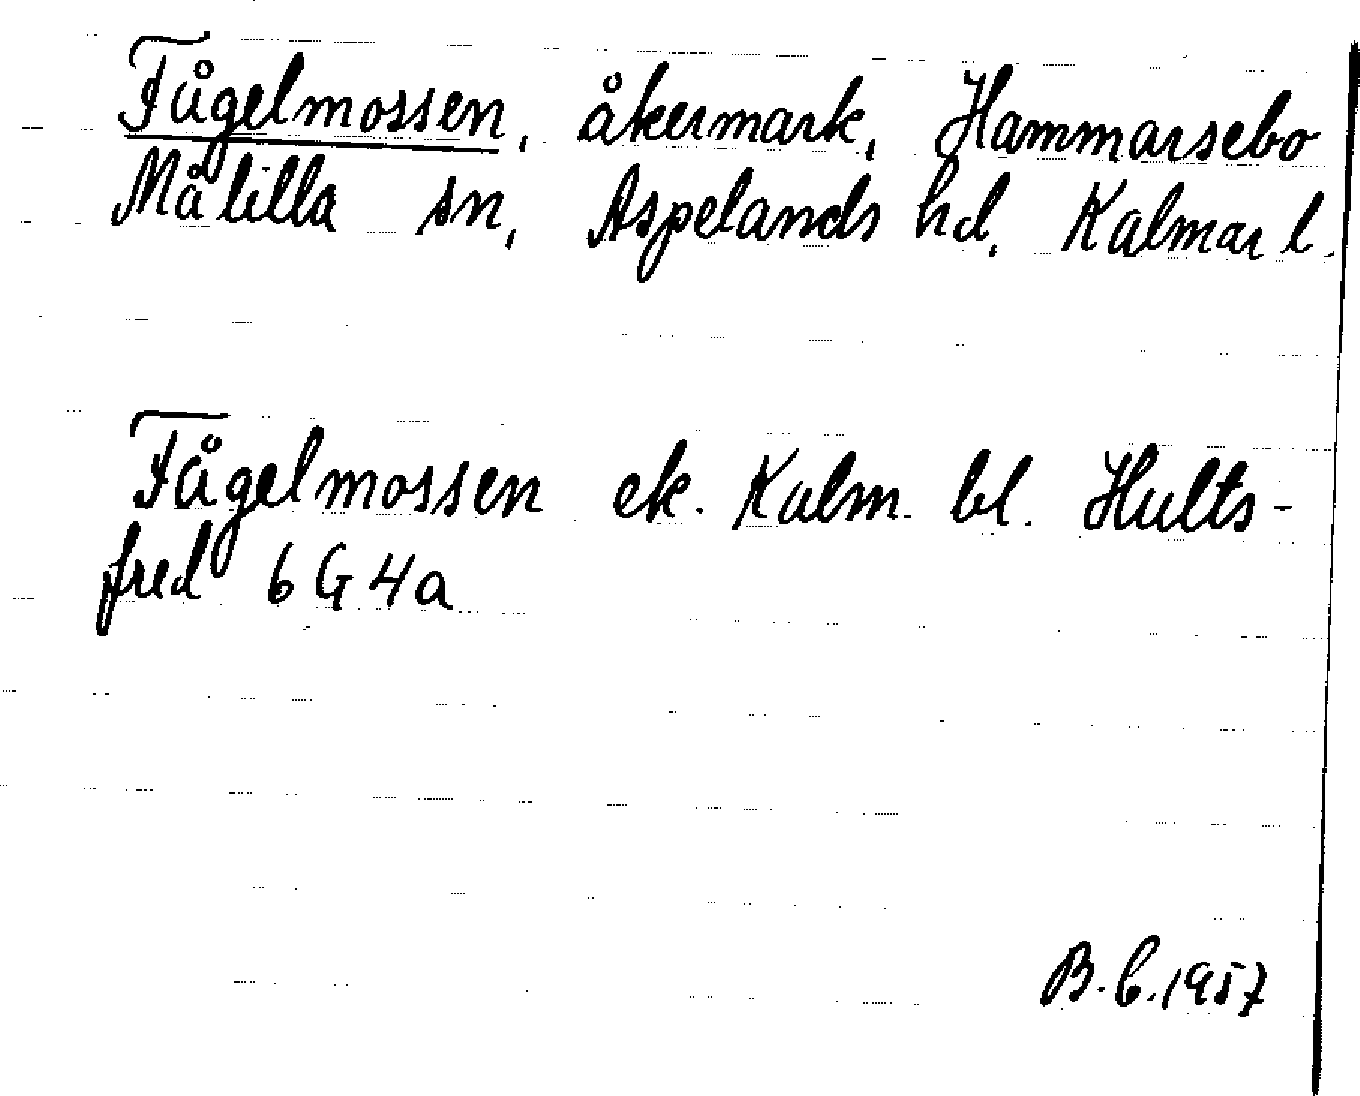 Fågelmossen, åkermark, Hammarsebo
Målilla sn, Aspelands hd, Kalmar l.
Fågelmossen ek. Kalm. bl. Hults-
fred 6 G 4a
B.b. 1957